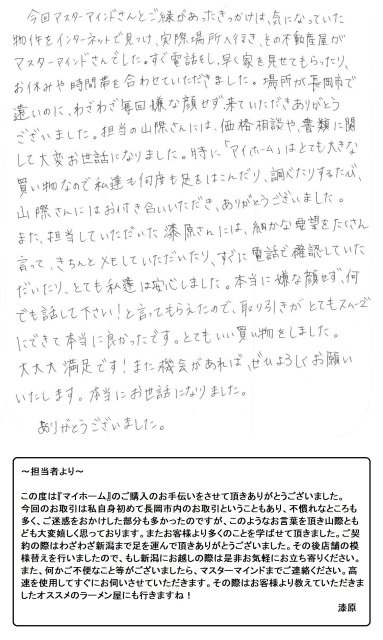 今回マスターマインドさんとご縁があったきっかけは、気になっていた
物件をインターネットで見つけ、実際場所へ行き、その不動産屋が
マスターマインドさんでした。すぐ電話をし、早く家を見せてもらったり、
お休みや時間帯を合わせていただきました。場所が長岡市で
遠いのに、わざわざ毎回嫌な顔せず来ていただきありがとう
ございました。担当の山際さんには、価格相談や、書類に関
して大変お世話になりました。特に「アイホーム」はとても大きな
買い物なので私達も何度も足をはこんだり、調べたりするたび、
山際さんにはお付き合いいただき、ありがとうございました。
また、担当していただいた漆原さんには、細かな要望をたくさん
言って、きちんとメモしていただいたり、すぐに電話で確認していた
だいたり、とても私達は安心しました。本当に嫌な顔せず、何
でも話して下さい!と言ってもらえたので、取り引きがとてもスムーズ
にできて本当に良かったです。とてもいい買い物をしました。
大大大満足です!また機会があれば、ぜひよろしくお願い
いたします。本当にお世話になりました。
ありがとうございました。
~担当者より~
この度は『マイホーム』のご購入のお手伝いをさせて頂きありがとうございました。
今回のお取引は私自身初めて長岡市内のお取引ということもあり、不慣れなところも
多く、ご迷惑をおかけした部分も多かったのですが、このようなお言葉を頂き山際とも
ども大変嬉しく思っております。またお客様より多くのことを学ばせて頂きました。ご契
約の際はわざわざ新潟まで足を運んで頂きありがとうございました。その後店舗の模
様替えを行いましたので、もし新潟にお越しの際は是非お気軽にお立ち寄りください。
また、何かご不便なこと等がございましたら、マスターマインドまでご連絡ください。高
速を使用してすぐにお伺いさせていただきます。その際はお客様より教えていただきま
したオススメのラーメン屋にも行きますね!
漆原